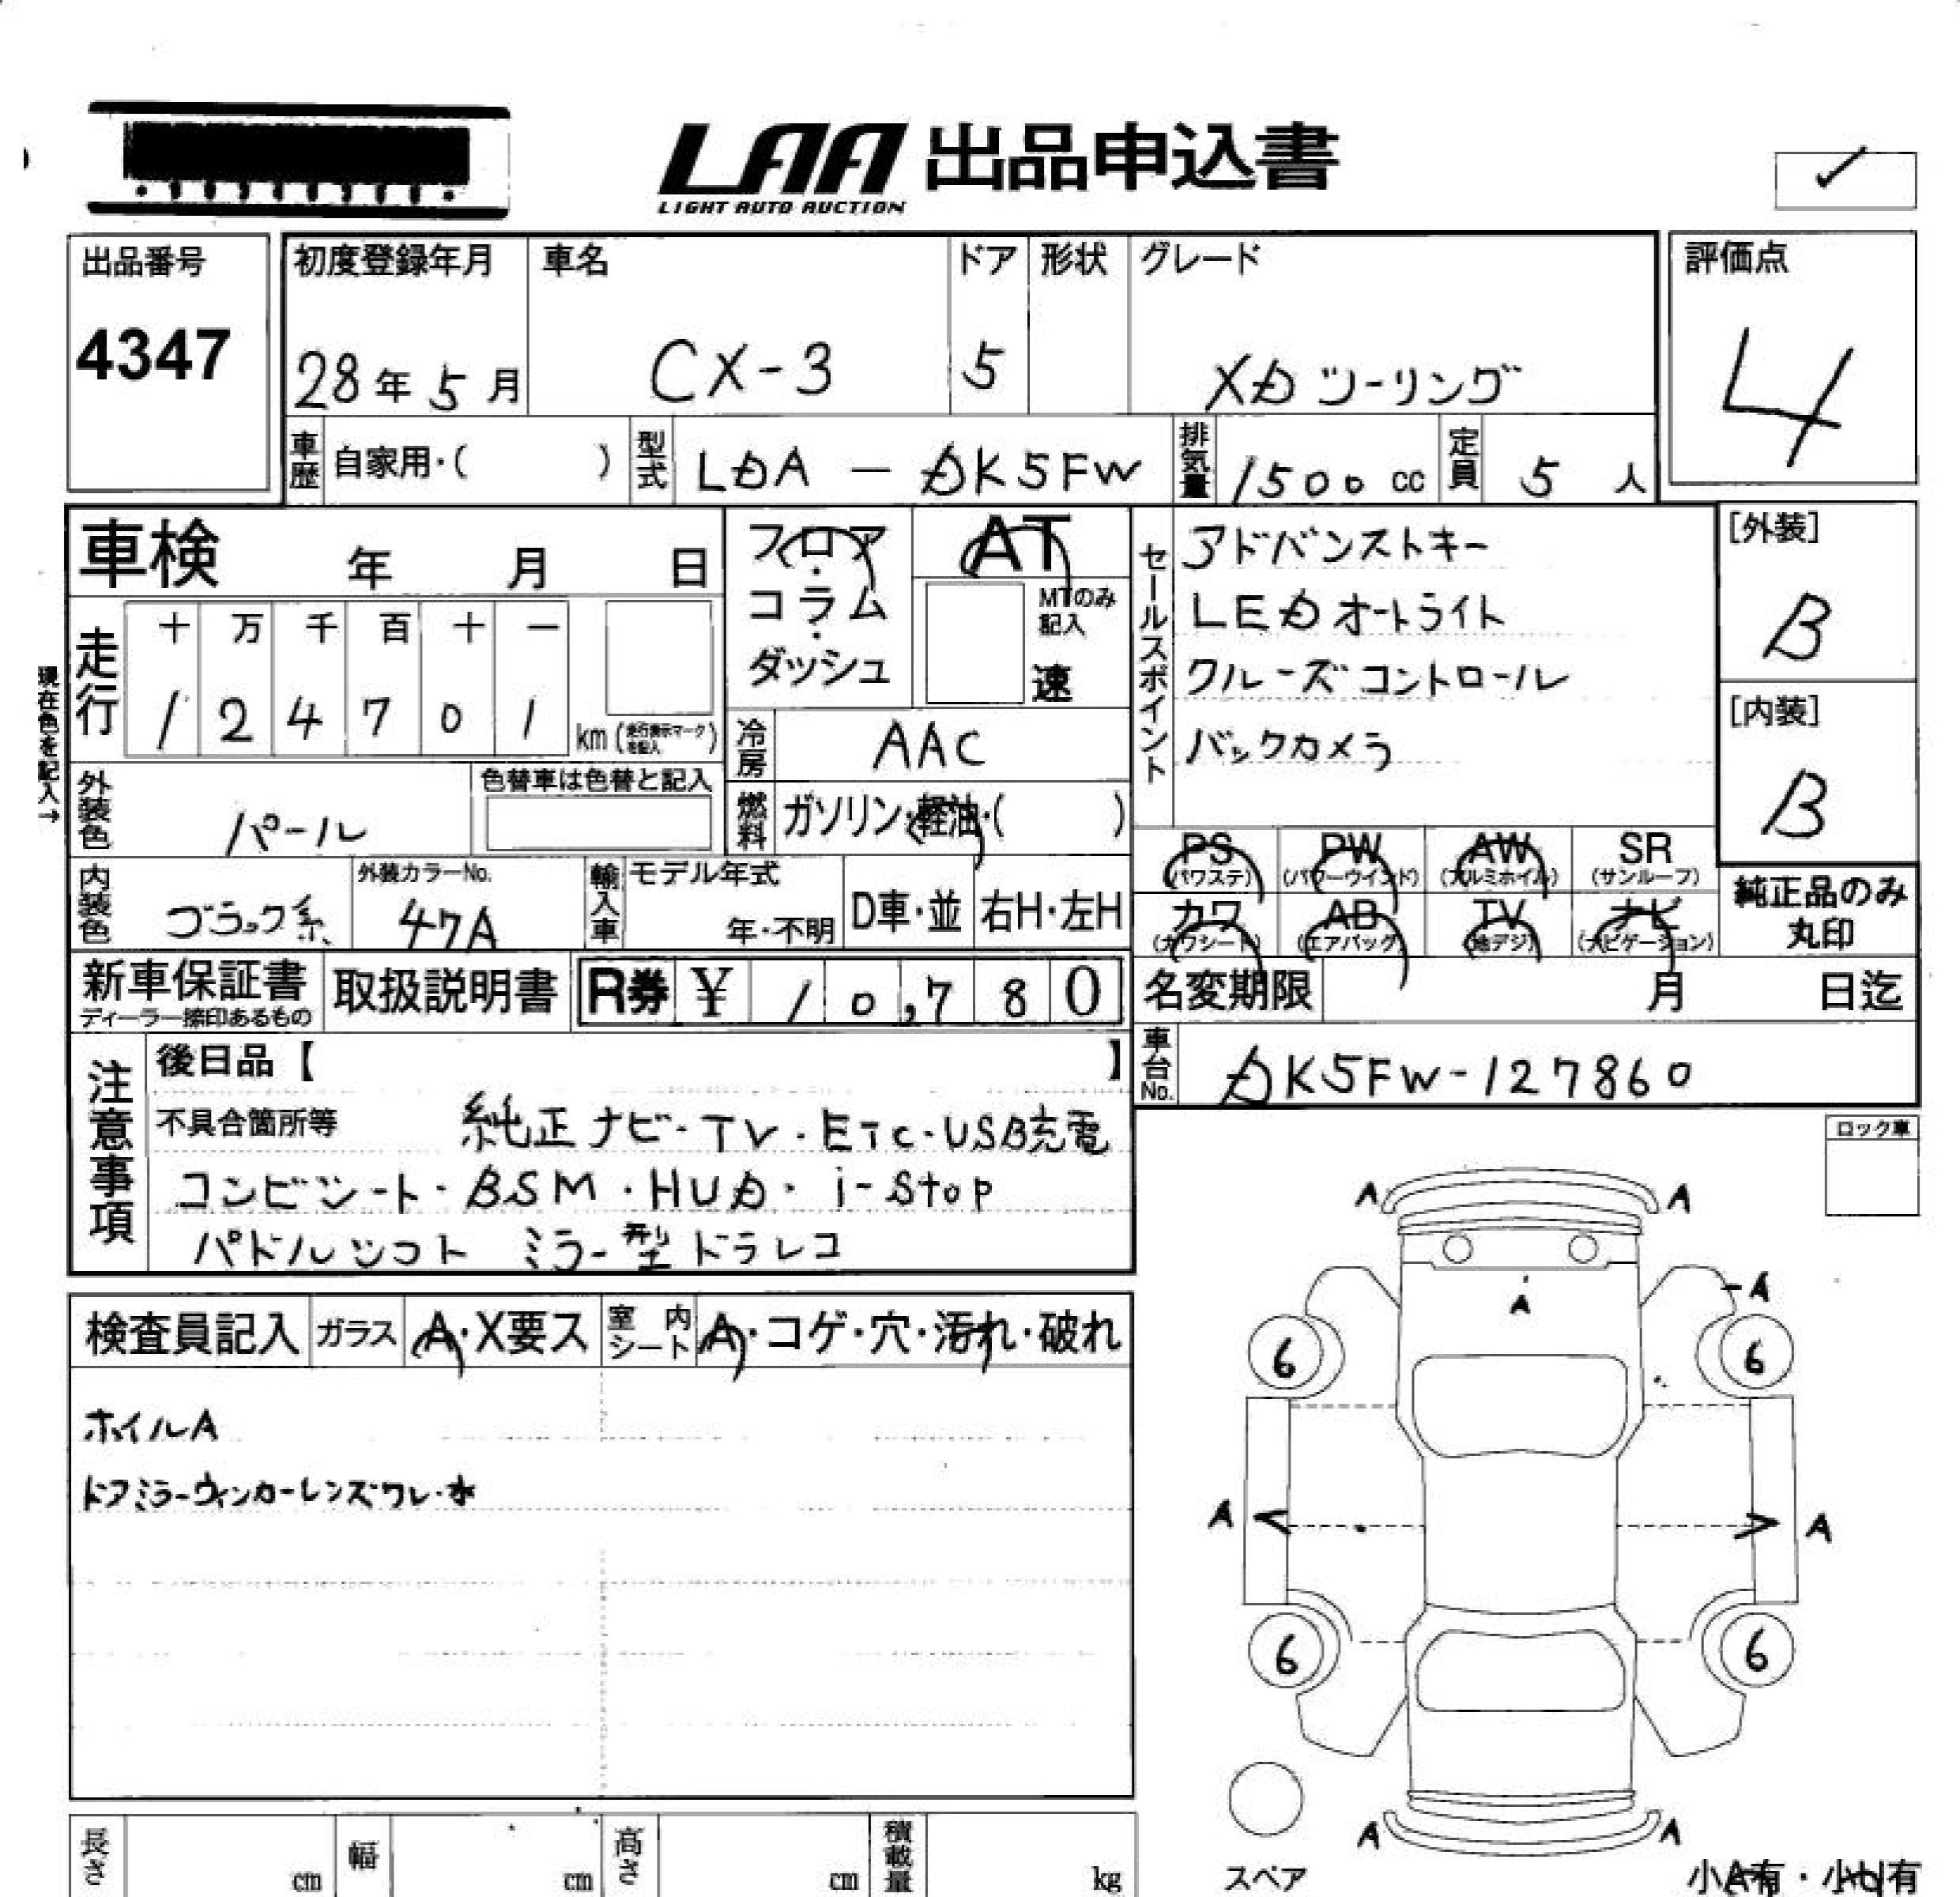 LAA 出品申込書
LIGHT AUTO AUCTION
出品番号
4347
初度登録年月
28年5月
車名
CX-3
ドア
5
形状
グレード
XDツーリング
評価点
4
車歴 自家用・( )
型式 LDA-DK5FW
排気量 1500 cc
定員 5 人
車検 年 月 日
走行
十 万 千 百 十 一
1 2 4 7 0 1 km (走行表示マークを記入)
現在色を記入→
フロア・コラム・ダッシュ
AT
MTのみ記入
速
冷房 AAC
燃料 ガソリン・軽油・( )
セールスポイント
アドバンストキー
LEDオートライト
クルーズコントロール
バックカメラ
[外装]
B
[内装]
B
外装色 パール
色替車は色替と記入
内装色 ブラック系
外装カラーNo.
47A
輸入車 モデル年式
年・不明
D車・並 右H・左H
PS (パワステ) PW (パワーウインド) AW (アルミホイル) SR (サンルーフ)
カワ (カワシート) AB (エアバッグ) TV (地デジ) ナビ (ナビゲーション)
純正品のみ
丸印
新車保証書
ディーラー捺印あるもの
取扱説明書
R券 ¥ 10,780
名変期限 月 日迄
車台No. DK5FW-127860
注意事項
後日品【 】
不具合箇所等 純正ナビ・TV・ETC・USB充電
コンビシート・BSM・HUD・i-stop
パドルシフト ミラー型ドラレコ
ロック車
検査員記入 ガラス A・X要ス 室内シート A・コゲ・穴・汚れ・破れ
ホイルA
ドアミラーウィンカーレンズワレ・水
A A
A
A
6 6
A A
6 6
A A
スペア
小A有・小U有
長さ cm 幅 cm 高さ cm 積載量 kg